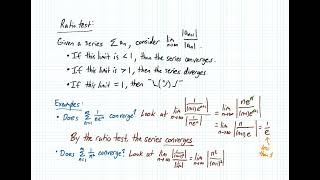 Ratio test:
Given a series Σ aₙ, consider lim n→∞ |aₙ₊₁| / |aₙ|.
• If this limit is < 1, then the series converges.
• If this limit is > 1, then the series diverges
• If this limit = 1, then "¯\_(ツ)_/¯"
Examples:
• Does Σ n=1 ∞ 1/(neⁿ) converge? Look at lim n→∞ |1/((n+1)eⁿ⁺¹)| / |1/(neⁿ)| = lim n→∞ |neⁿ / ((n+1)eⁿ⁺¹)|
= lim n→∞ |n / ((n+1)e)| = 1/e
less than 1
By the ratio test, the series converges
• Does Σ n=1 ∞ 1/n² converge? Look at lim n→∞ |1/(n+1)²| / |1/n²| = lim n→∞ |n² / (n+1)²|